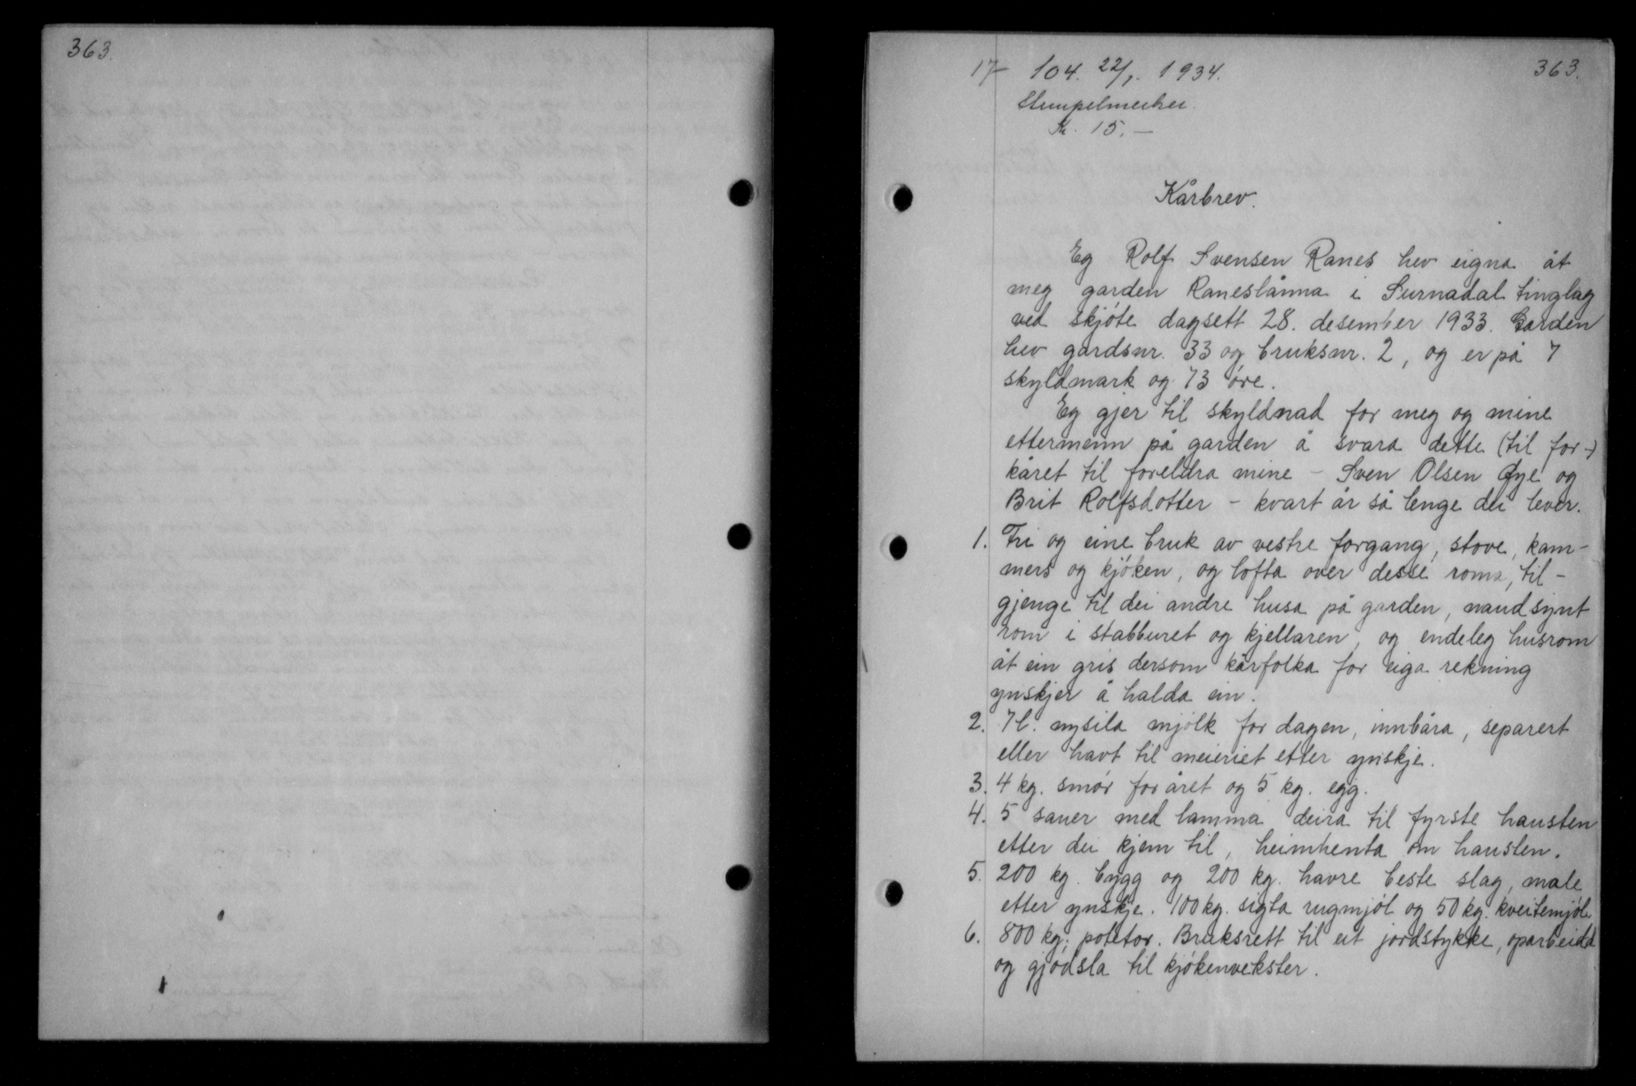 363.
17 104. 22/1. 1934. 363.
Stempelmerker
Kr. 15.-
Kårbrev.
Eg Rolf Svensen Ranes hev eigna åt
meg garden Raneslånna i Surnadal tinglag
ved skjöte dagsett 28. desember 1933. Garden
hev gardsnr. 33 og bruksnr. 2, og er på 7
skyldmark og 73 öre.
Eg gjer til skyldnad for meg og mine
ettermenn på garden å svara dette (til for-)
kåret til foreldra mine - Sven Olsen Øye og
Brit Rolfsdotter - kvart år så lenge dei lever.
1. Fri og eine bruk av vestre forgang, stove, kam-
mers og kjöken, og lofta over desse roma, til-
gjenge til dei andre husa på garden, naudsynt
rom i stabburet og kjellaren, og endeleg husrom
åt ein gris dersom kårfolka for eiga rekning
ynskjer å halda ein.
2. 7 l. nysila mjölk for dagen, innbåra, separert
eller havt til meieriet etter ynskje.
3. 4 kg. smör for året og 5 kg. egg.
4. 5 sauer med lamma deira til fyrste hausten
etter dei kjem til, heimhenta om hausten.
5. 200 kg. bygg og 200 kg. havre beste slag, male
etter ynskje. 100 kg. sigta rugmjöl og 50 kg. kveitemjöl.
6. 800 kg. poteter. Bruksrett til eit jordstykke, oparbeidd
og gjödsla til kjökenvekster.